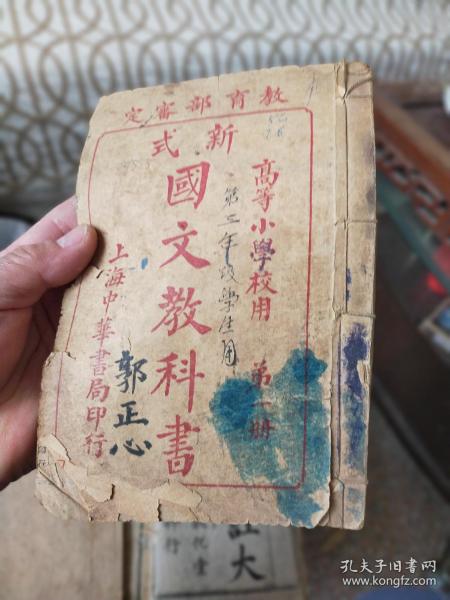 教育部審定
高等小學校用 第一册
第三年级學生用
新式
國文教科書
上海中華書局印行
郭正心
大
孔夫子旧书网
www.kongfz.com